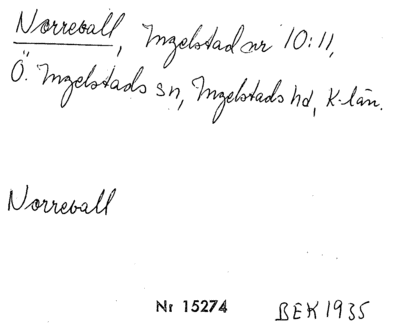 Norrevall, Ingelstad nr 10:11,
Ö. Ingelstads sn, Ingelstads hd, K-län.
Norrevall
Nr 15274 BEK 1935